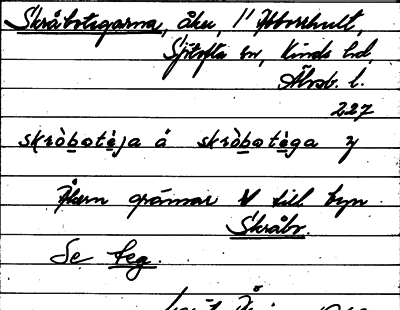 Skråbotegarna, åker, 1/1 Abborrhult,
Sjötofta sn, Kinds hd,
Älvsb. l.
227
skròbotèja å skròbotèga y
Åkern gränsar V till byn
Skråbo.
Se teg.